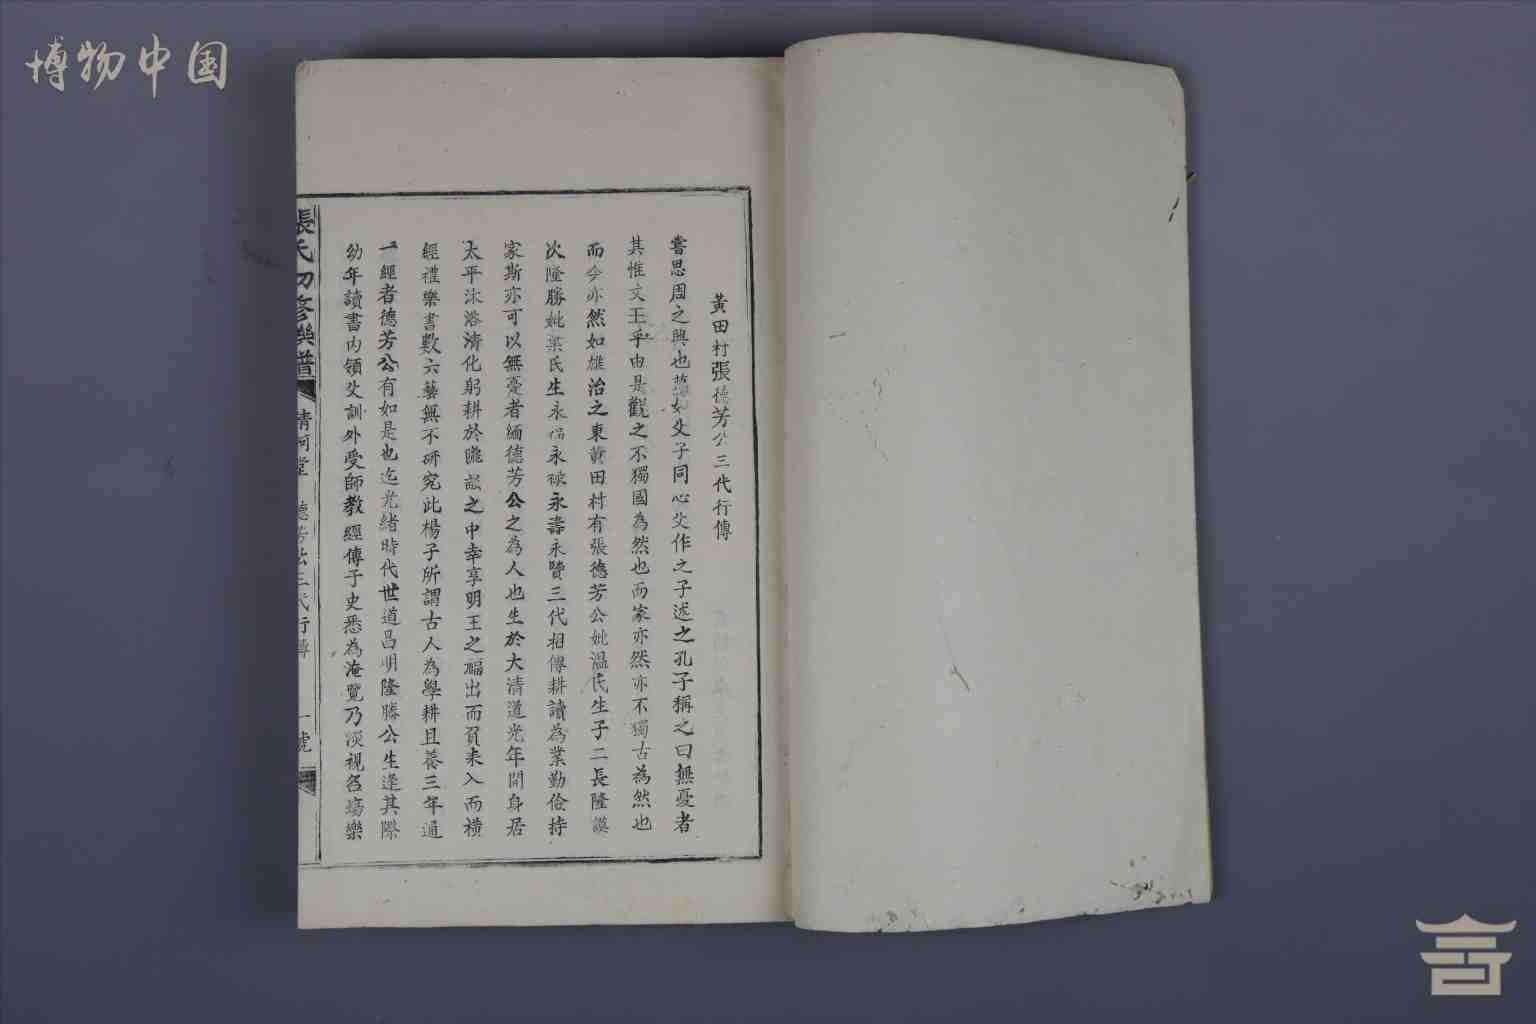 博物中国
黃田村張德芳公三代行傳
嘗思周之興也蓋如父子同心父作之子述之孔子稱之曰無憂者
其惟文王乎由是觀之不獨國為然也而家亦然亦不獨古為然也
而今亦然如雄治之東黃田村有張德芳公妣溫氏生子二長隆謨
次隆勝妣梁氏生永福永祿永壽永贊三代相傳耕讀為業勤儉持
家斯亦可以無憂者緬德芳公之為人也生於大清道光年間身居
太平沐浴清化躬耕於隴畝之中幸享明王之福出而負耒入而橫
經禮樂書數六藝無不研究此楊子所謂古人為學耕且養三年通
一經者德芳公有如是也迄光緒時代世道昌明隆勝公生逢其際
幼年讀書內領父訓外受師教經傳子史悉為淹覽乃淡視名場樂
張氏初修族譜 清河堂 德芳公三代行傳 一號